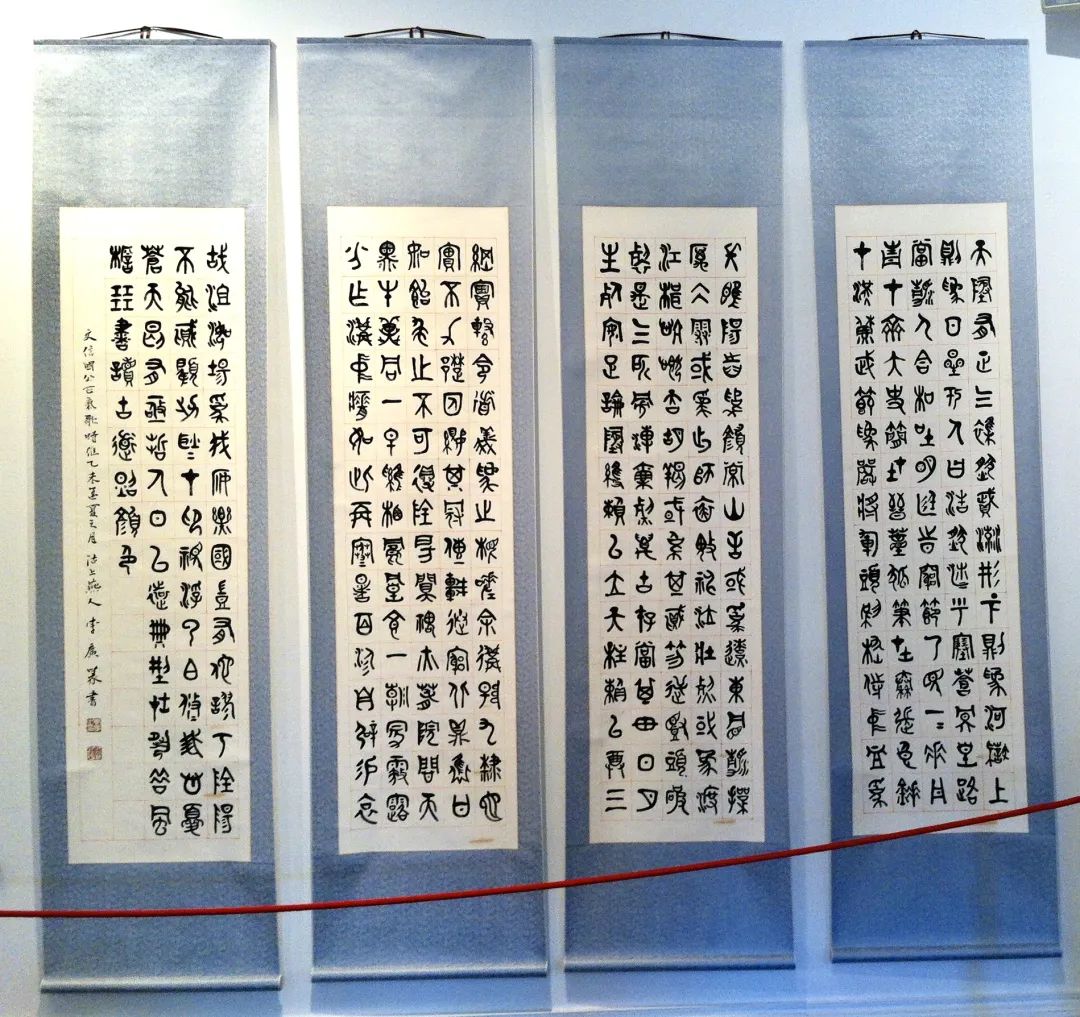 天地有正气雜然賦流形下則為河嶽上
則為日星於人曰浩然沛乎塞蒼冥皇路
當清夷含和吐明庭時窮節乃見一一垂丹
青在齊太史簡在晉董狐筆在秦張良椎
在漢蘇武節為嚴將軍頭為嵇侍中血為
張睢陽齒為顏常山舌或為遼東帽清操
厲冰雪或為出師表鬼神泣壯烈或為渡
江楫慷慨吞胡羯或為擊賊笏逆豎頭破
裂是气所磅礴凜烈萬古存當其貫日月
生死安足論地維賴以立天柱賴以尊三
綱實繫命道義為之根嗟余遘陽九隸也
實不力楚囚纓其冠傳車送窮北鼎鑊甘
如飴求之不可得陰房闃鬼火春院閟天
黑牛驥同一皁雞棲鳳凰食一朝蒙霧露
分作溝中瘠如此再寒暑百沴自辟易哀
哉沮洳場為我安樂國豈有他繆巧陰陽
不能賊顧此耿耿在仰視浮雲白悠悠我心憂
蒼天曷有極哲人日已遠典型在夙昔風
檐展書讀古道照顏色
文信國公正氣歌時維乙未孟夏之月沽上燕人李廣篆書